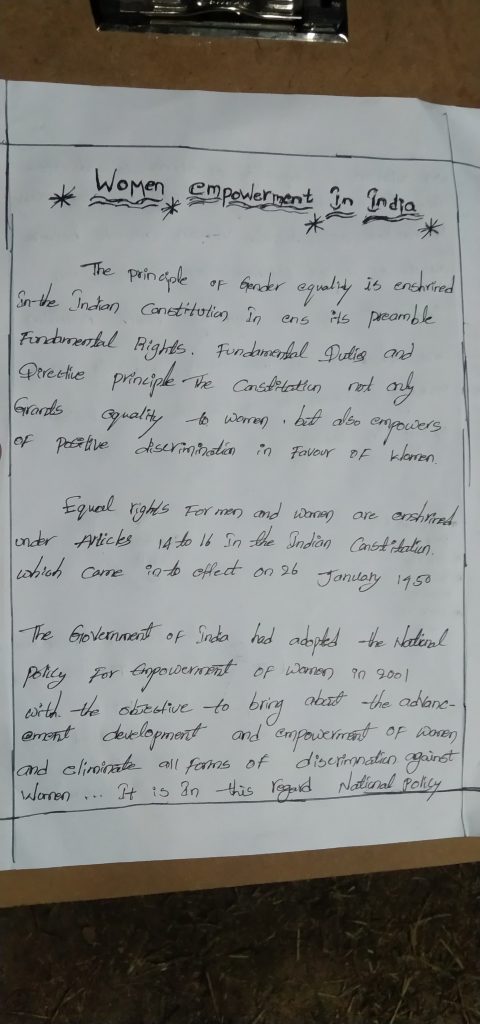 Women empowerment In India
The principle of Gender equality is enshrined
In-the Indian Constitution In ens its preamble
Fundamental Rights. Fundamental Duties and
Directive principle The Constitution not only
Grants equality to women. but also empowers
of positive discrimination in Favour of Women.
Equal rights For men and women are enshrined
under Articles 14 to 16 In the Indian Constitution.
which came in-to effect on 26 January 1950
The Government of India had adopted the National
policy For Empowerment of Women in 2001
with the objective to bring about the advanc-
ement development and empowerment of women
and eliminate all Forms of discrimnation against
Women ... It is In this regard National Policy